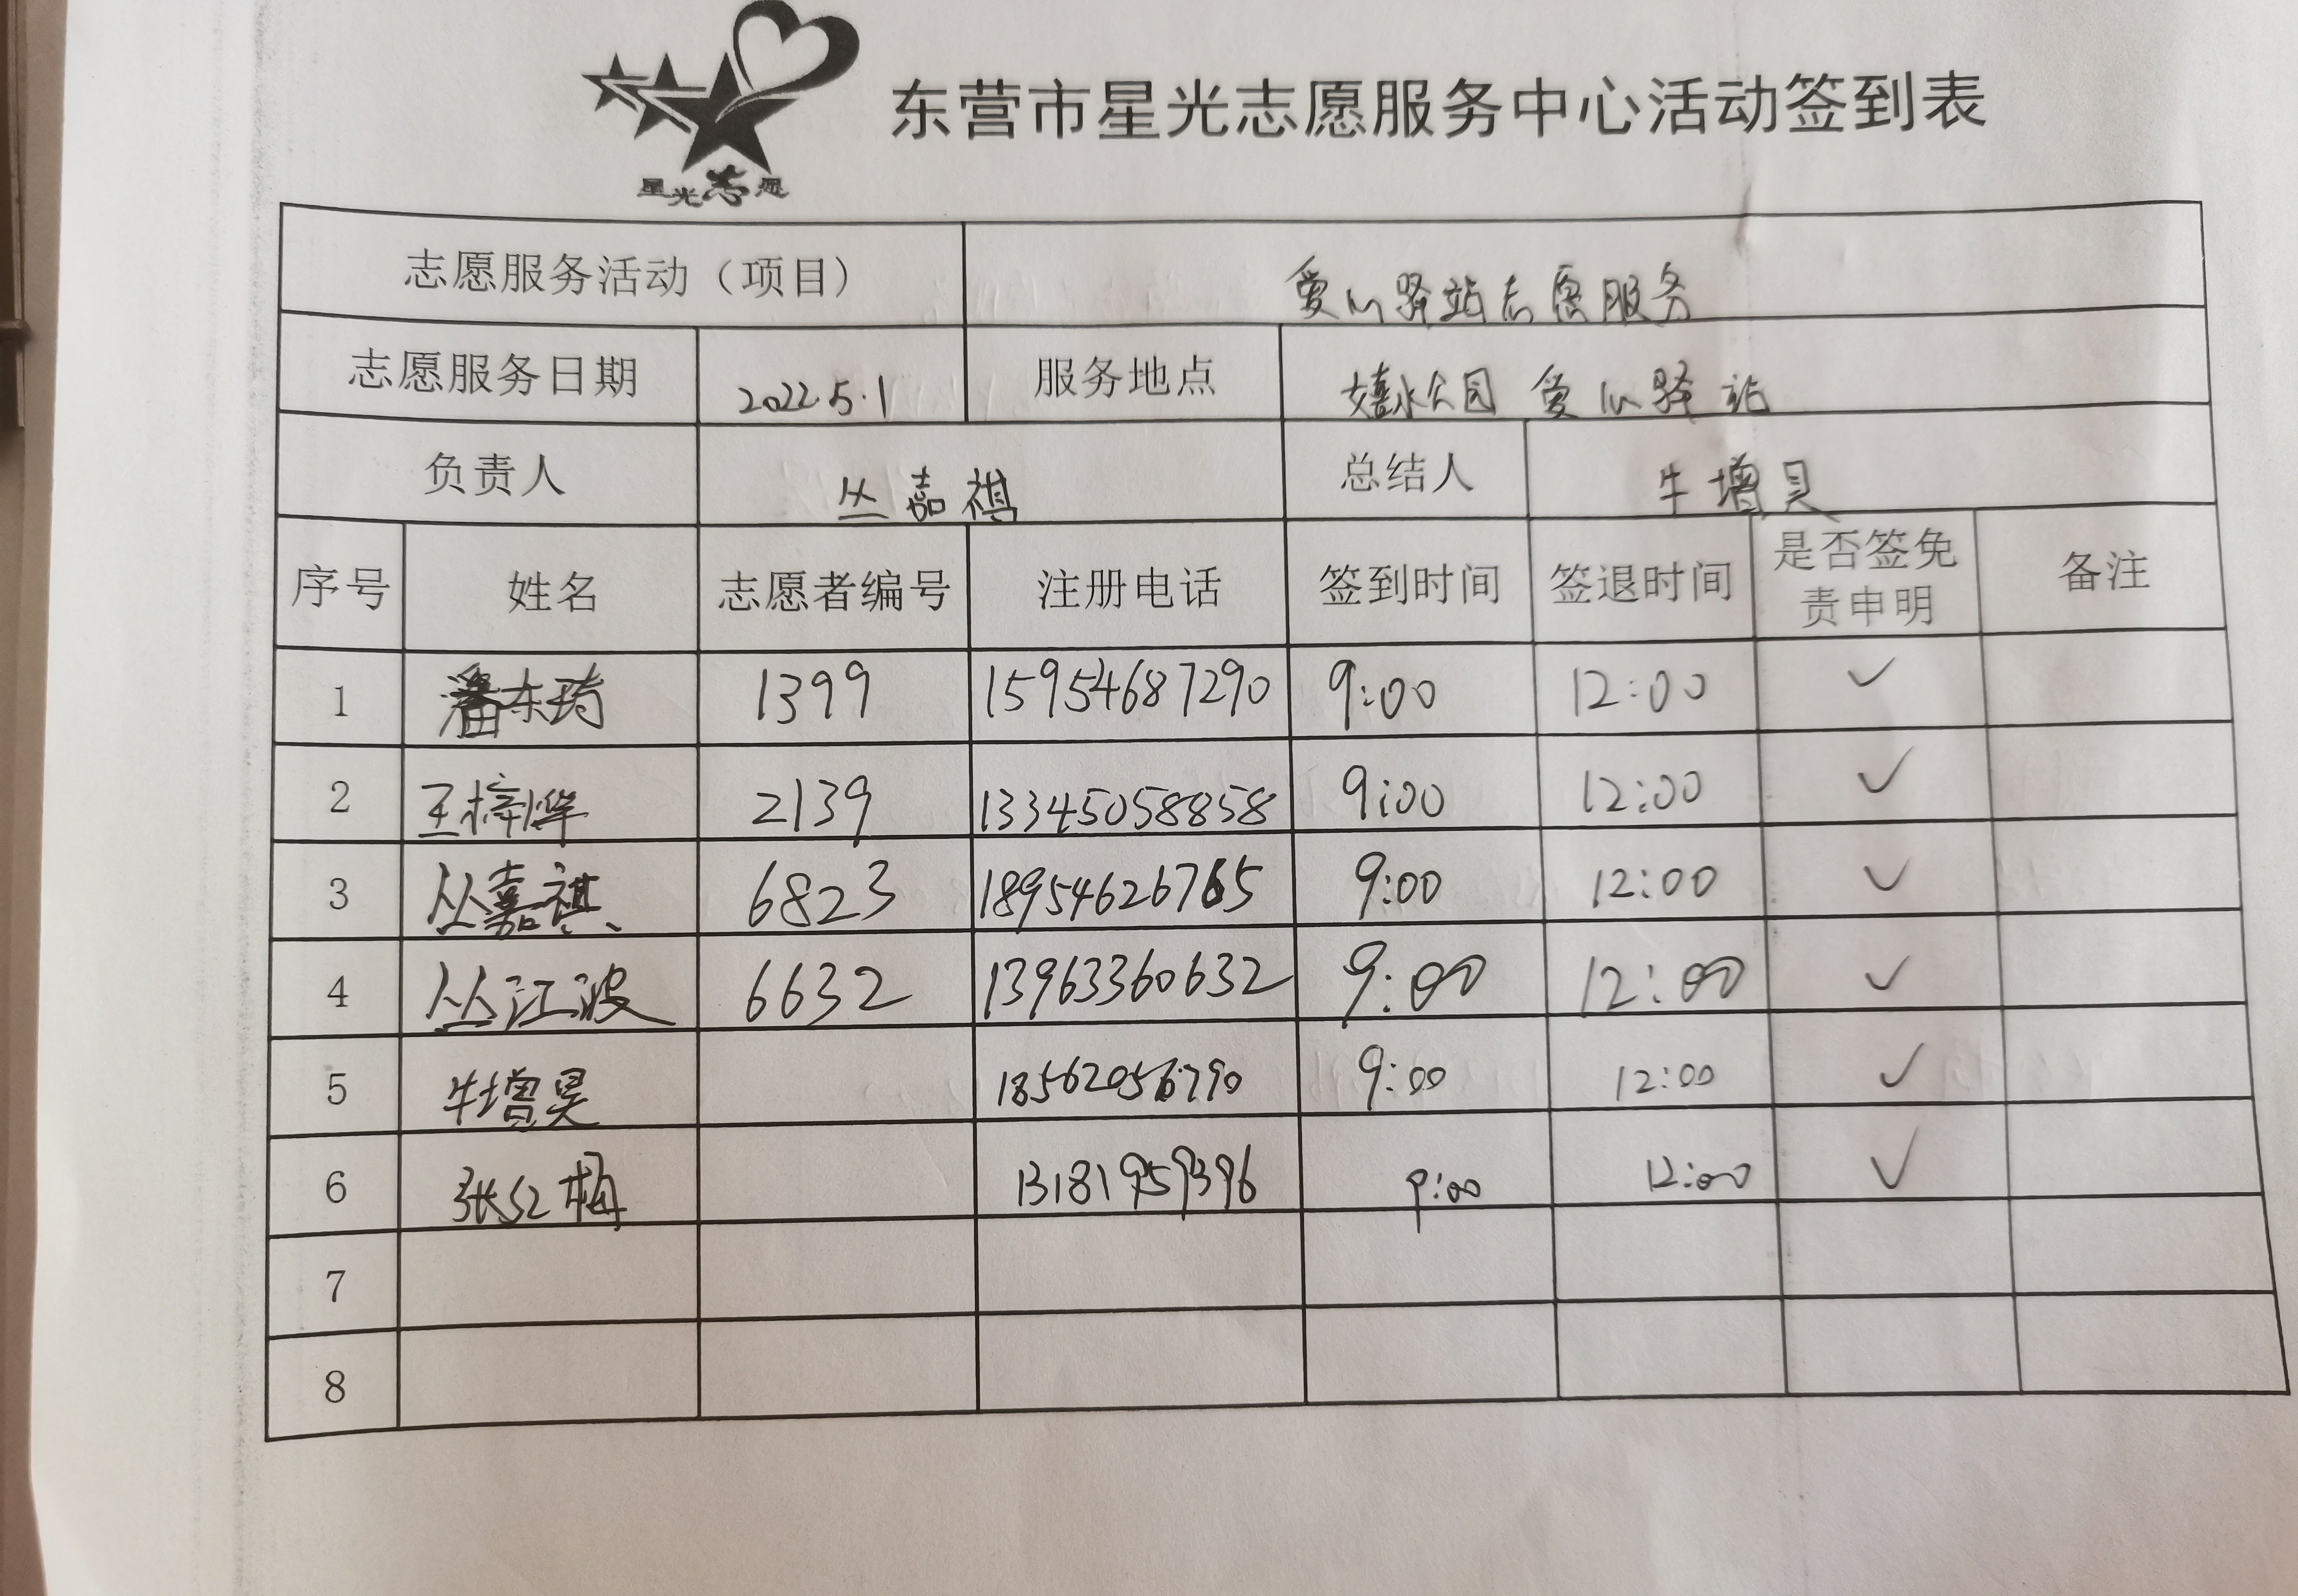 东营市星光志愿服务中心活动签到表
星光志愿
志愿服务活动（项目） 爱心驿站志愿服务
志愿服务日期 2022.5.1 服务地点 嬉水公园 爱心驿站
负责人 丛嘉祺 总结人 牛增昊
序号 姓名 志愿者编号 注册电话 签到时间 签退时间 是否签免责申明 备注
1 潘东琦 1399 15954687290 9:00 12:00 ✓
2 王梓烨 2139 13345058858 9:00 12:00 ✓
3 丛嘉祺 6823 18954626765 9:00 12:00 ✓
4 丛江波 6632 13963360632 9:00 12:00 ✓
5 牛增昊 18562056790 9:00 12:00 ✓
6 张红梅 13181959396 9:00 12:00 ✓
7
8